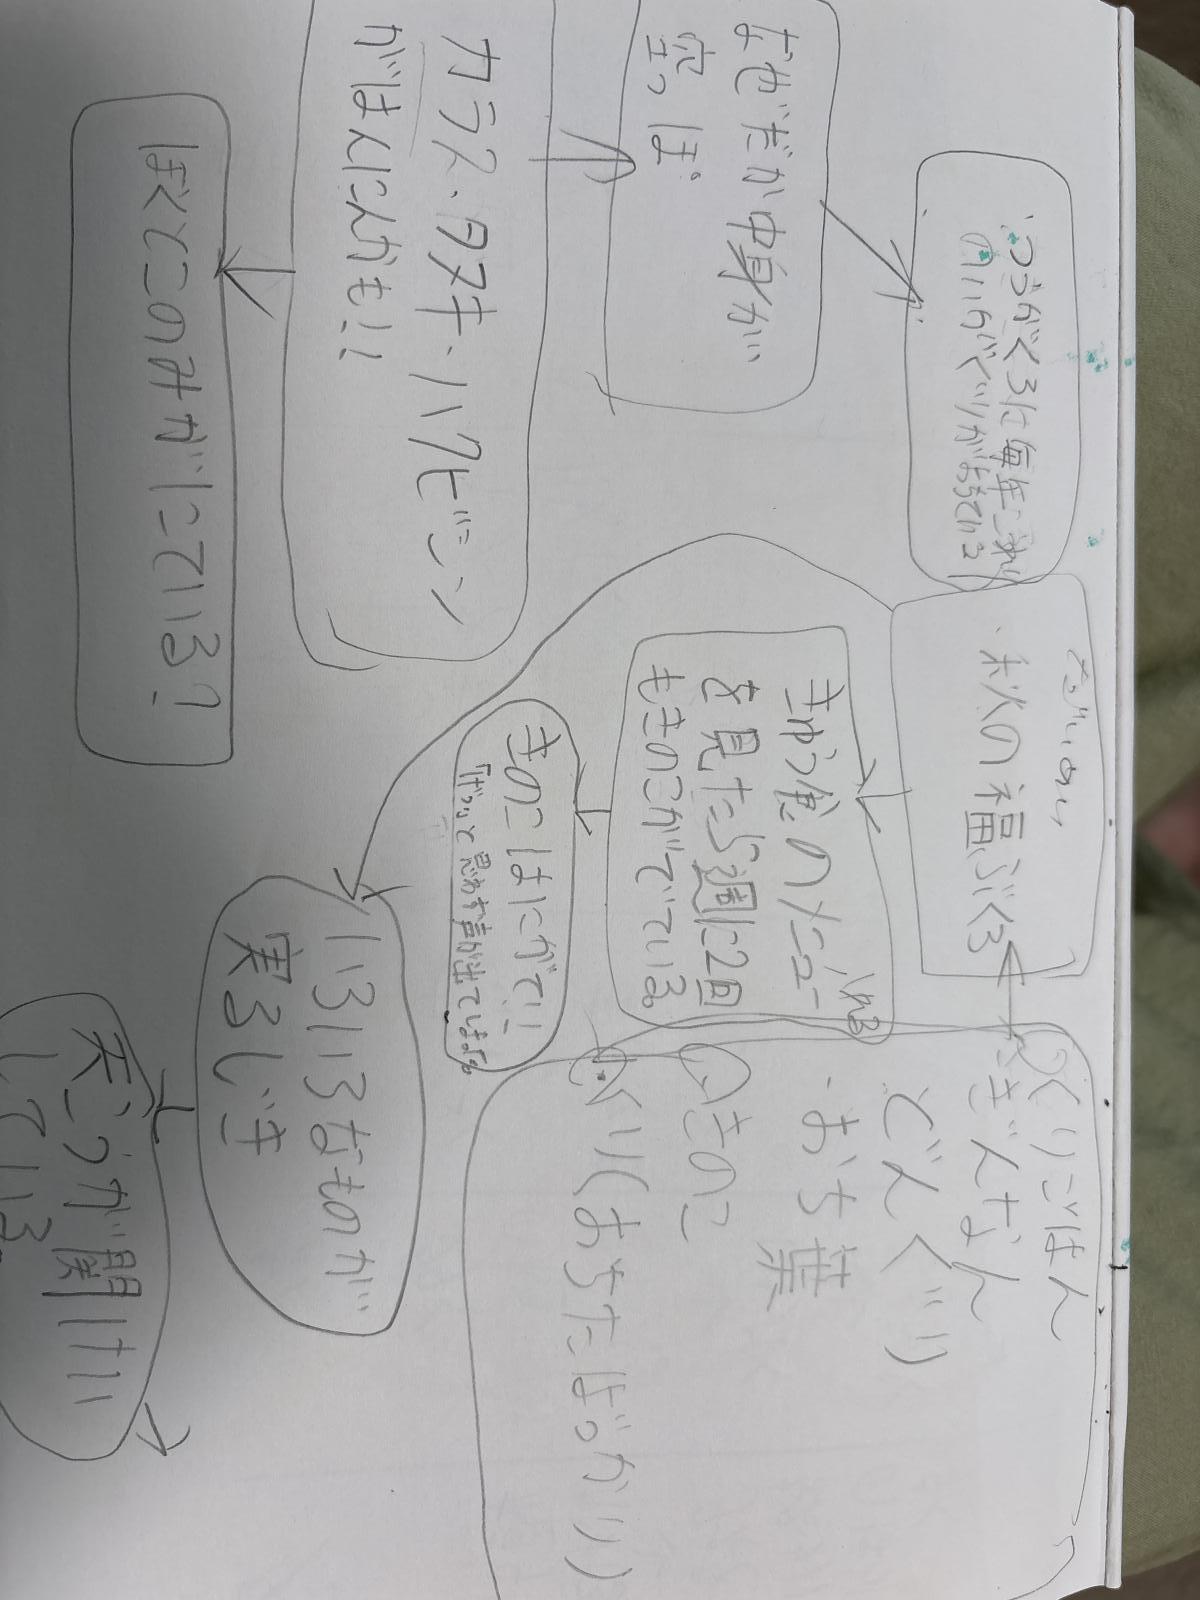 だいめい
・秋の福ぶくろ
つうがくろは毎年
のいがぐりがおちている
なぜだか中身が
空っぽ。
カラス・タヌキ・ハクビシン
がはんにんかも!!
ぼくとこのみがにている?
きゅう食のメニュー
を見たら週に2回
もきのこがでている。
きのこはにがて!
いろいろなものが
実るじき
天こうが関けい
している
くりごはん
ぎんなん
どんぐり
・おち葉
きのこ
・くり(おちたばっかり)